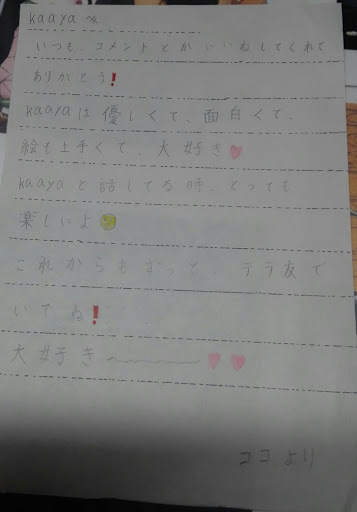 kaayaへ
いつも、コメントとかいいねしてくれて
ありがとう❗
kaayaは優しくて、面白くて、
絵も上手くて、大好き
kaayaと話してる時、とっても
楽しいよ
これからもずっと、テラ友で
いてね❗
大好き〜
ココより